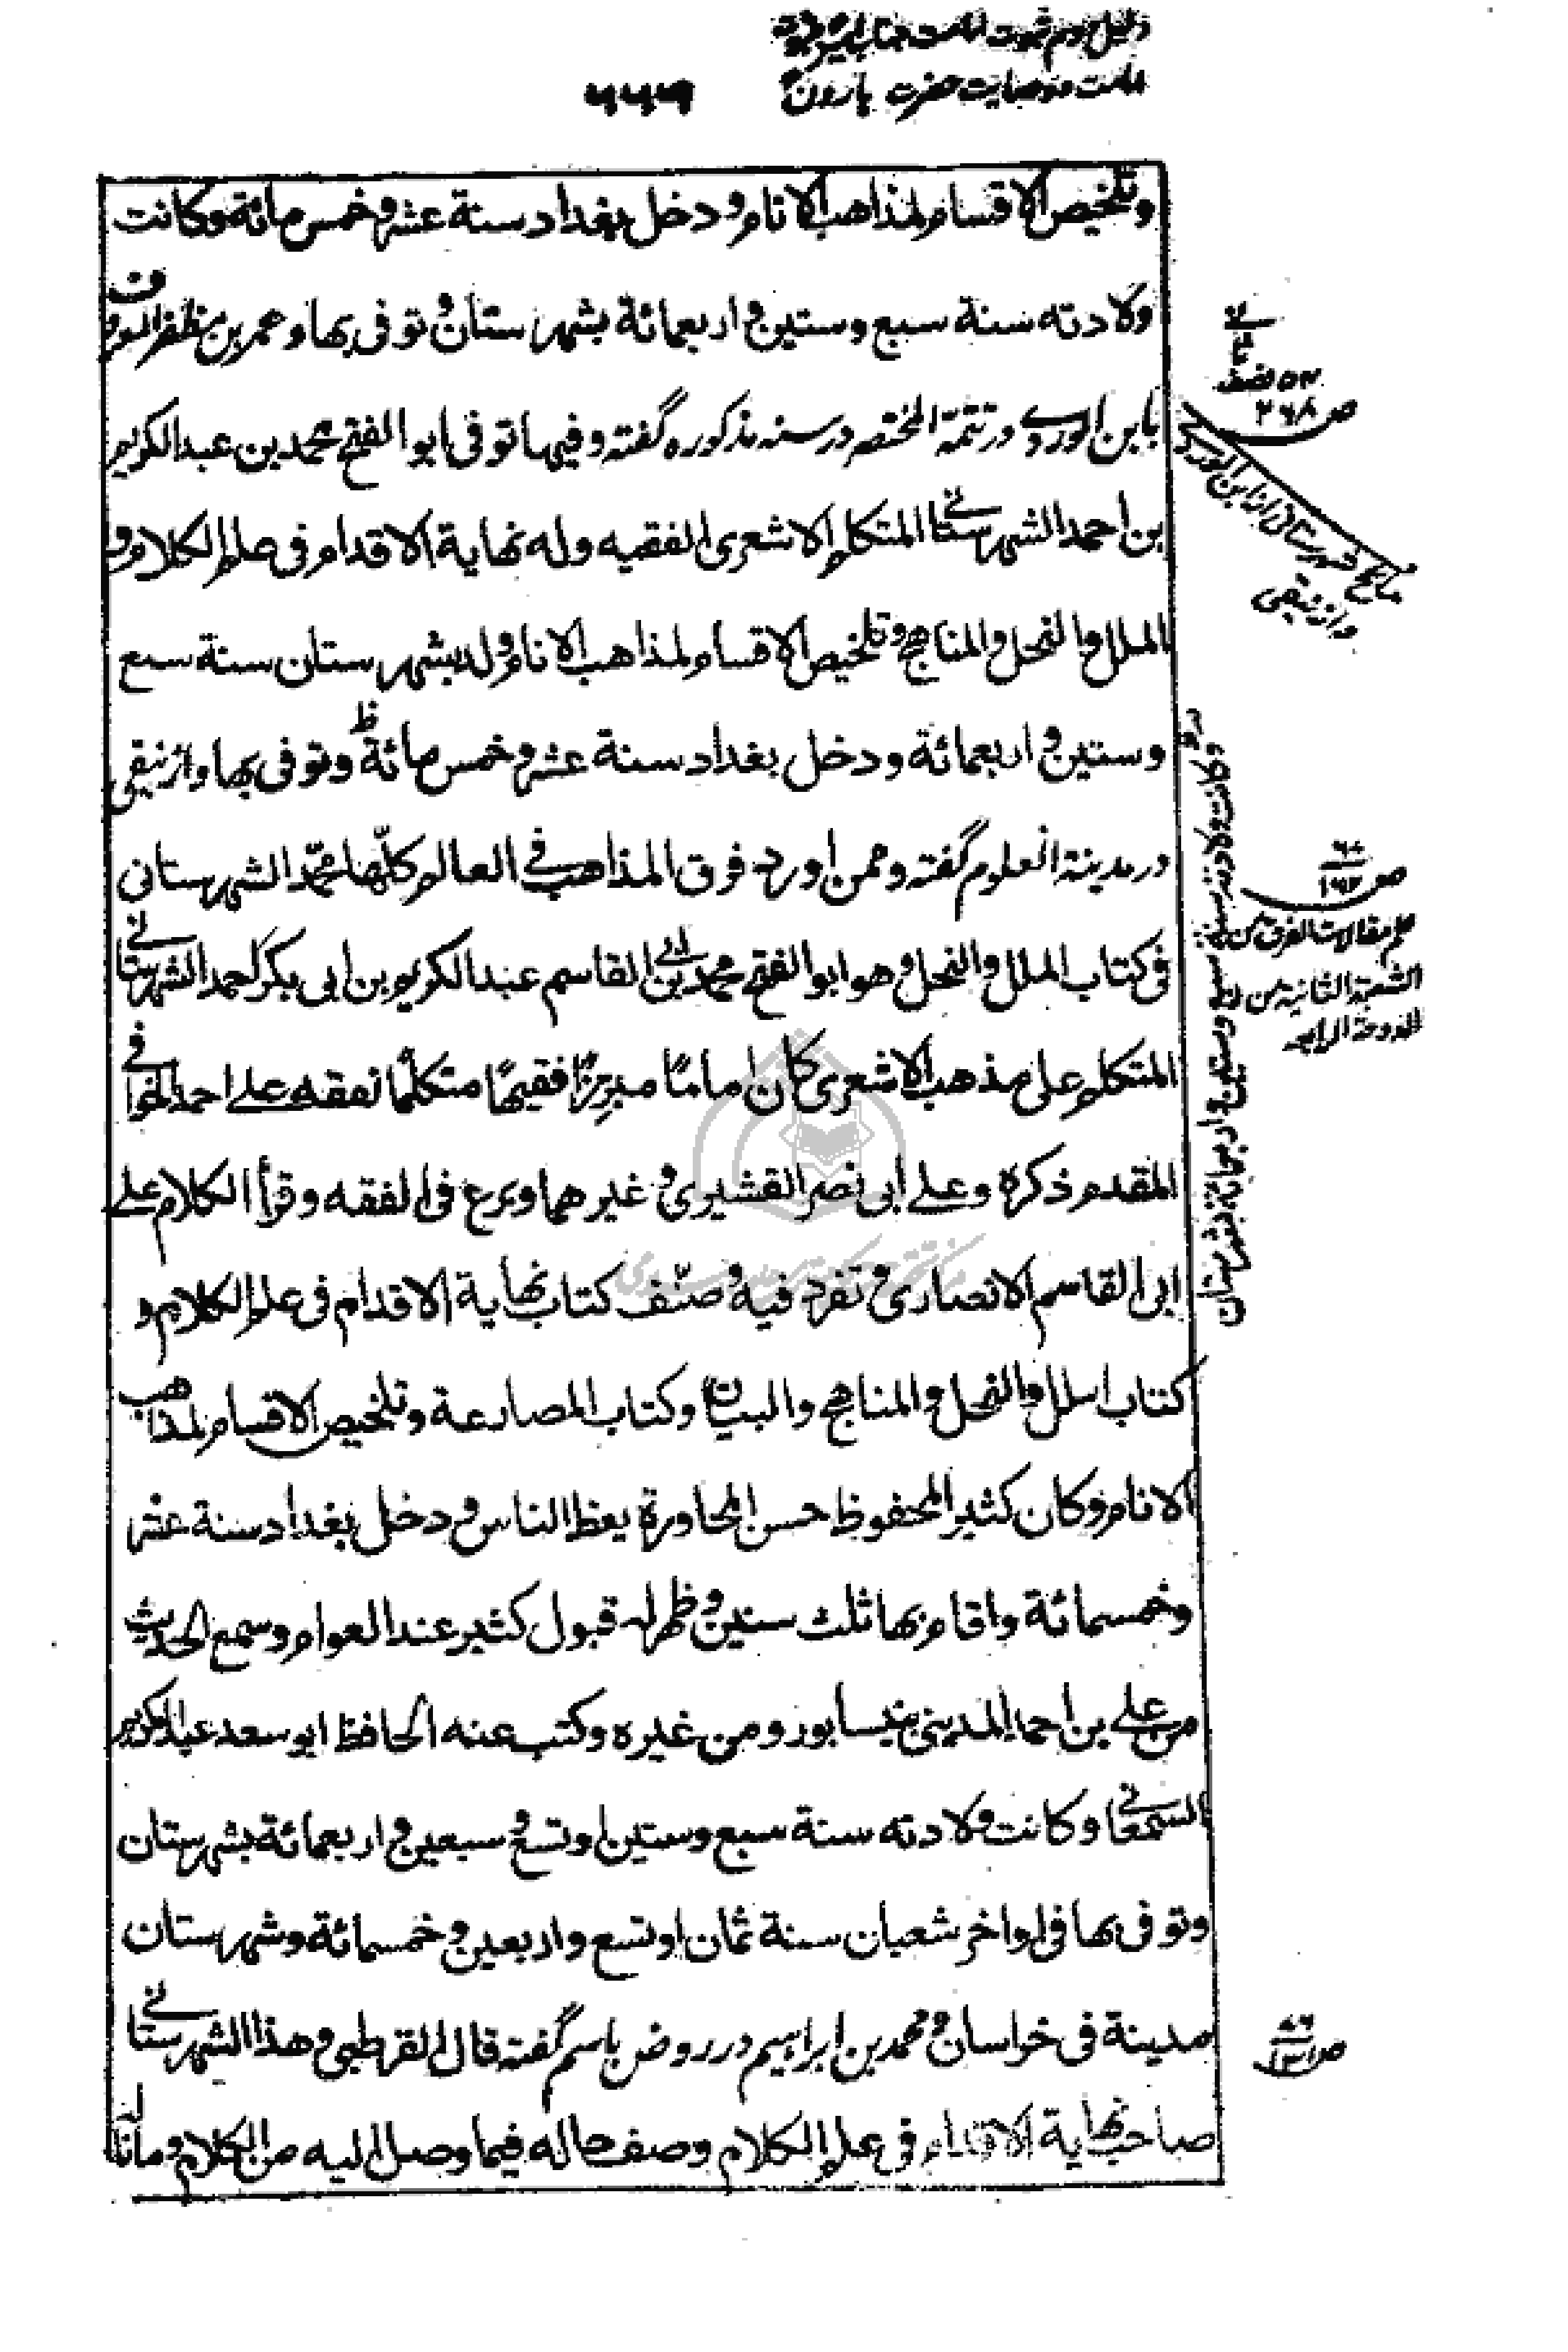 دلیل دوم ثبوت امامت جناب امیر ثبوت
امامت و وصایت حضرت ہارون
۷۷۹
وتلخيص الاقسام لمذاهب الانام ودخل بغداد سنة عشر وخمس مائة وكانت
ولادته سنة سبع وستين واربعمائة بشهرستان وتوفى بها وعمر بن مظفر المعروف
بابن الوردے در تتمة المختصر در سنه مذکوره گفته وفيها توفى ابو الفتح محمد بن عبد الكريم
بن احمد الشهرستانے المتكلم الاشعرى الفقيه وله نهاية الاقدام فى علم الكلام و
الملل والنحل والمناهج وتلخيص الاقسام لمذاهب الانام ولد بشهرستان سنة سبع
وستين واربعمائة ودخل بغداد سنة عشر وخمس مائة ظ وتوفى بها وازنیقی
در مدینة العلوم گفته وممن اورد فرق المذاهب فے العالم كلّها محمّد الشهرستانى
فى كتاب الملل والنحل وهو ابو الفتح محمد بن ابے القاسم عبد الكريم بن ابى بكر احمد الشهرستانے
المتكلم على مذهب الاشعرى كان اماما مبرزا فقيها متكلما تفقه على احمد الخوافے
المقدم ذكره وعلے أبى نصر القشيرى وغيرهما وبرع فى الفقه وقرأ الكلام على
ابى القاسم الانصارى وتفرد فيه وصنّف كتاب نهاية الاقدام فى علم الكلام و
كتاب الملل والنحل والمناهج والبيان وكتاب المصارعة وتلخيص الاقسام لمذاهب
الانام وكان كثير المحفوظ حسن المحاورة يعظ الناس ودخل بغداد سنة عشر
وخمسمائة واقام بها ثلث سنين وظهر له قبول كثير عند العوام وسمع الحديث
من على بن احمد المدينى بنيسابور ومن غيره وكتب عنه الحافظ ابو سعد عبد الكريم
السمعانے وكانت ولادته سنة سبع وستين او تسع وسبعين واربعمائة بشهرستان
وتوفى بها فى اواخر شعبان سنة ثمان او تسع واربعين وخمسمائة وشهرستان
مدينة فى خراسان ومحمد بن ابراہیم در روض باسم گفته قال القرطبى وهذا الشهرستانے
صاحب نهاية الاقدام فى علم الكلام وصف حاله فيما وصل اليه من الكلام وما
ص ۲۶۸
مدایح شهرستانی از ابن الوردی
وازنیقی
وكانت ولادته سنة سبع وستين واربعمائة بشهرستان
ص ۱۹۲
علم مقالات الفرق من
الشعبة الثانية من
الدوحة الرابعه